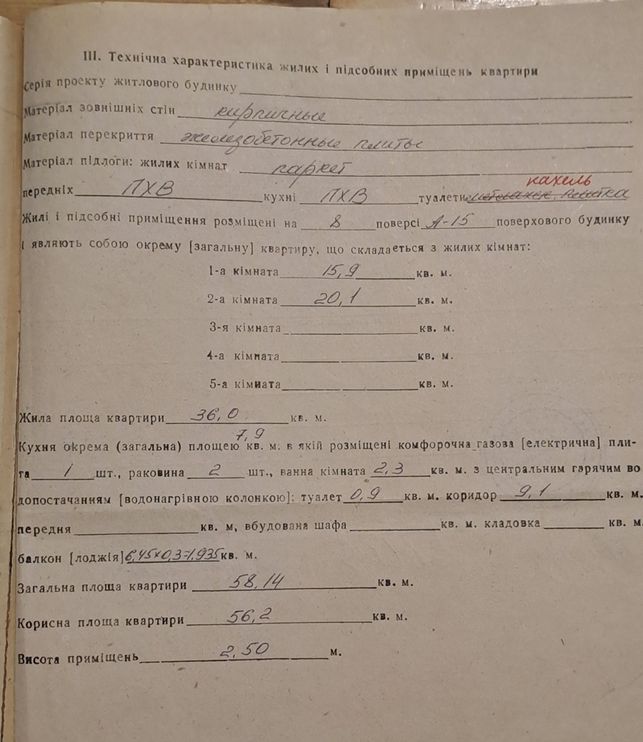 III. Технічна характеристика жилих і підсобних приміщень квартири
Серія проекту житлового будинку
Матеріал зовнішніх стін кирпичные
Матеріал перекриття железобетонные плиты
Матеріал підлоги: жилих кімнат паркет
кахель
передніх ПХВ кухні ПХВ туалети плитка
Жилі і підсобні приміщення розміщені на 8 поверсі А-15 поверхового будинку
і являють собою окрему [загальну] квартиру, що складаеться з жилих кімнат:
1-а кімната 15,9 кв. м.
2-а кімната 20,1 кв. м.
3-я кімната кв. м.
4-а кімната кв. м.
5-а кімната кв. м.
Жила площа квартири 36,0 кв. м.
7,9
Кухня окрема (загальна) площею кв. м. в якій розміщені комфорочна газова [електрична] пли-
та 1 шт., раковина 2 шт., ванна кімната 2,3 кв. м. з центральним гарячим во
допостачанням [водонагрівною колонкою]; туалет 0,9 кв. м. коридор 9,1 кв. м.
передня кв. м, вбудована шафа кв. м. кладовка кв. м
балкон [лоджія] 6,45х0,3=1,935 кв. м.
Загальна площа квартири 58,14 кв. м.
Корисна площа квартири 56,2 кв. м.
Висота приміщень 2,50 м.